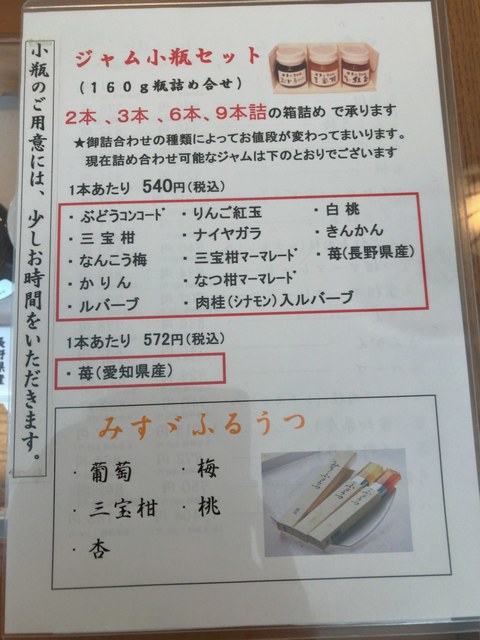 小瓶のご用意には、少しお時間をいただきます。
ジャム小瓶セット
(160g瓶詰め合せ)
2本 、3本 、6本、9本詰の箱詰め で承ります
★御詰合わせの種類によってお値段が変わってまいります。
現在詰め合わせ可能なジャムは下のとおりでございます
1本あたり 540円(税込)
・ぶどうコンコード ・りんご紅玉 ・白 桃
・三 宝 柑 ・ナイヤガラ ・きんかん
・なんこう梅 ・三宝柑マーマレード ・苺(長野県産)
・かりん ・なつ柑マーマレード
・ルバーブ ・肉桂(シナモン)入ルバーブ
1本あたり 572円(税込)
・苺(愛知県産)
みすゞふるうつ
・葡萄 ・梅
・三宝柑 ・桃
・杏